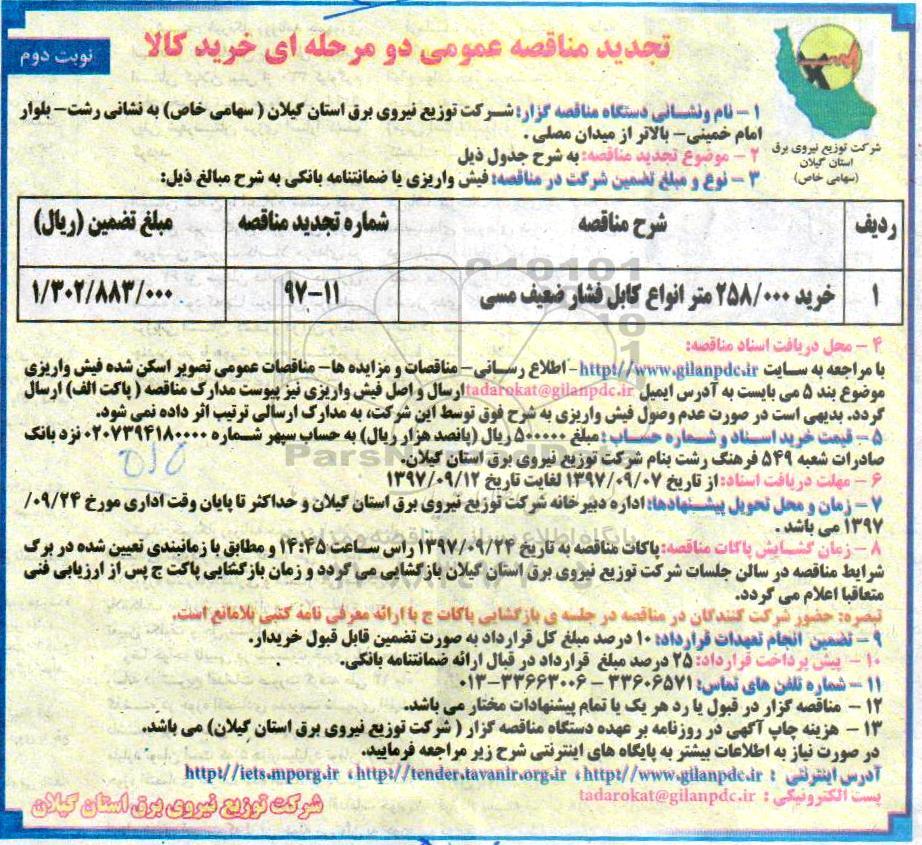 تجدید مناقصه عمومی دو مرحله ای خرید کالا
نوبت دوم
شرکت توزیع نیروی برق
استان گیلان
(سهامی خاص)
۱ – نام ونشانی دستگاه مناقصه گزار: شرکت توزیع نیروی برق استان گیلان ( سهامی خاص) به نشانی رشت– بلوار
امام خمینی– بالاتر از میدان مصلی .
۲ – موضوع تجدید مناقصه: به شرح جدول ذیل
۳ – نوع و مبلغ تضمین شرکت در مناقصه: فیش واریزی یا ضمانتنامه بانکی به شرح مبالغ ذیل:
ردیف شرح مناقصه شماره تجدید مناقصه مبلغ تضمین (ریال)
۱ خرید ۲۵۸/۰۰۰ متر انواع کابل فشار ضعیف مسی ۱۱–۹۷ ۱/۳۰۲/۸۸۳/۰۰۰
۴ – محل دریافت اسناد مناقصه:
با مراجعه به سایت http//www.gilanpdc.ir – اطلاع رسانی– مناقصات و مزایده ها– مناقصات عمومی تصویر اسکن شده فیش واریزی
موضوع بند ۵ می بایست به آدرس ایمیل tadarokat@gilanpdc.ir ارسال و اصل فیش واریزی نیز پیوست مدارک مناقصه ( پاکت الف) ارسال
گردد. بدیهی است در صورت عدم وصول فیش واریزی به شرح فوق توسط این شرکت، به مدارک ارسالی ترتیب اثر داده نمی شود.
۵ – قیمت خرید اسناد و شماره حساب : مبلغ ۵۰۰۰۰۰ ریال (پانصد هزار ریال) به حساب سپهر شماره ۰۲۰۷۳۹۴۱۸۰۰۰۰ نزد بانک
صادرات شعبه ۵۴۹ فرهنگ رشت بنام شرکت توزیع نیروی برق استان گیلان.
۶ – مهلت دریافت اسناد: از تاریخ ۱۳۹۷/۰۹/۰۷ لغایت تاریخ ۱۳۹۷/۰۹/۱۲
۷ – زمان و محل تحویل پیشنهادها: اداره دبیرخانه شرکت توزیع نیروی برق استان گیلان و حداکثر تا پایان وقت اداری مورخ ۰۹/۲۴/
۱۳۹۷ می باشد .
۸ – زمان گشایش پاکات مناقصه: پاکات مناقصه به تاریخ ۱۳۹۷/۰۹/۲۴ راس ساعت ۱۴:۴۵ و مطابق با زمانبندی تعیین شده در برگ
شرایط مناقصه در سالن جلسات شرکت توزیع نیروی برق استان گیلان بازگشایی می گردد و زمان بازگشایی پاکت ج پس از ارزیابی فنی
متعاقبا اعلام می گردد.
تبصره: حضور شرکت کنندگان در مناقصه در جلسه ی بازگشایی پاکات ج با ارائه معرفی نامه کتبی بلامانع است.
۹ – تضمین انجام تعهدات قرارداد: ۱۰ درصد مبلغ کل قرارداد به صورت تضمین قابل قبول خریدار.
۱۰ – پیش پرداخت قرارداد: ۲۵ درصد مبلغ قرارداد در قبال ارائه ضمانتنامه بانکی.
۱۱ – شماره تلفن های تماس: ۳۳۶۰۶۵۷۱ – ۳۳۶۶۳۰۰۶–۰۱۳
۱۲ – مناقصه گزار در قبول یا رد هر یک یا تمام پیشنهادات مختار می باشد.
۱۳ – هزینه چاپ آگهی در روزنامه بر عهده دستگاه مناقصه گزار ( شرکت توزیع نیروی برق استان گیلان) می باشد.
در صورت نیاز به اطلاعات بیشتر به پایگاه های اینترنتی شرح زیر مراجعه فرمایید.
آدرس اینترنتی : http//www.gilanpdc.ir ، http//tender.tavanir.org.ir ، http//iets.mporg.ir
پست الکترونیکی : tadarokat@gilanpdc.ir
شرکت توزیع نیروی برق استان گیلان